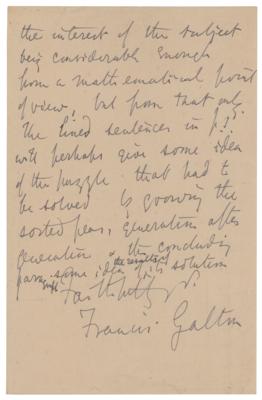 the interest of the subject
being considerable enough
from a mathematical point
of view, but from that only.
The lined sentences in p.
will perhaps give some idea
of the puzzle that had to
be solved by growing the
sorted peas, generation after
generation & the concluding
para. some idea of its solution
Faithfully yrs.
Francis Galton